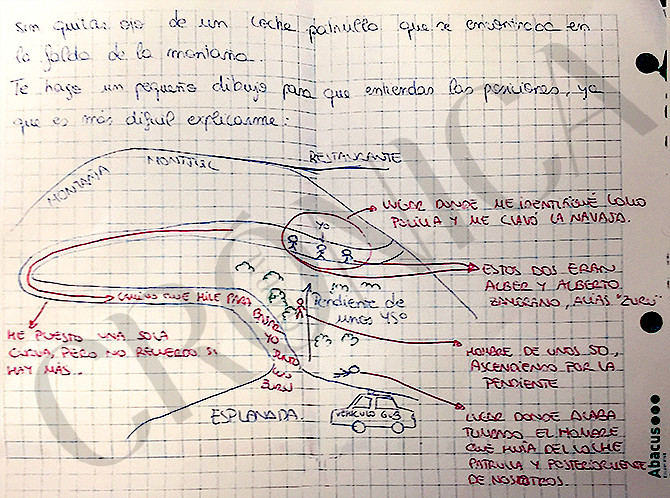 Sin quitar ojo de un coche patrulla que se encontraba en
la falda de la montaña.
Te hago un pequeño dibujo para que entiendas las posiciones, ya
que es más dificil explicarme:
MONTAÑA MONTJUIC
RESTAURANTE
LUGAR DONDE ME IDENTIFIQUÉ COMO
POLICIA Y ME CLAVÓ LA NAVAJA.
YO
ESTOS DOS ERAN
ALBER Y ALBERTO
ZANGRANO, ALIAS "ZURU"
CAMINO QUE HICE PARA
BAJAR
YO
JUNTO
CON
ZURU
Pendiente de
unos 450
HE PUESTO UNA SOLA
CURVA, PERO NO RECUERDO SI
HAY MÁS...
HOMBRE DE UNOS 50,
ASCENDIENDO POR LA
PENDIENTE
ESPLANADA
VEHÍCULO GUB
LUGAR DONDE ACABA
TUMBADO EL HOMBRE
QUE HUÍA DEL COCHE
PATRULLA Y POSTERIORMENTE
DE NOSOTROS.
CRÓNICA
Abacus